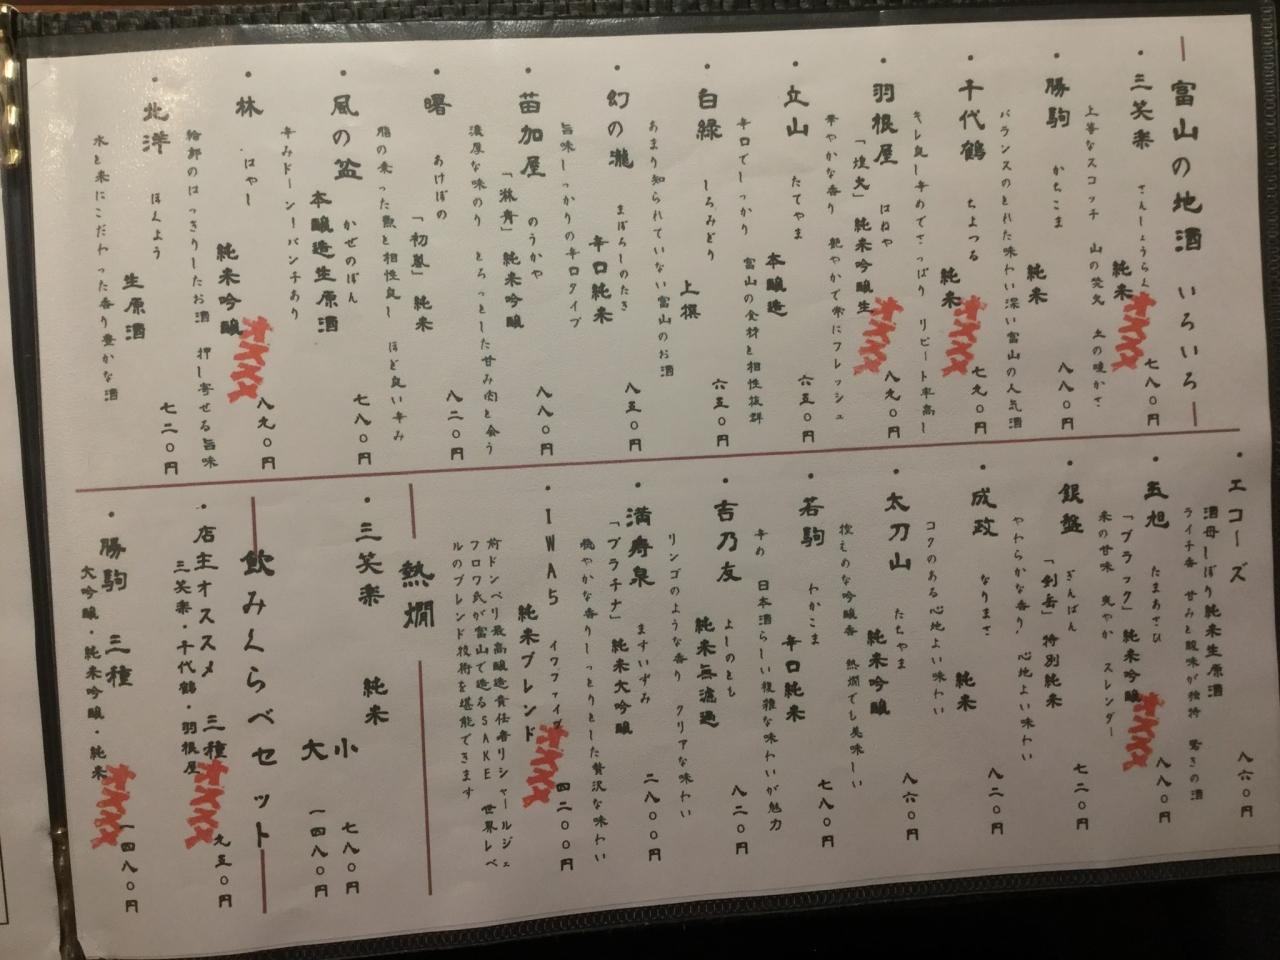 富山の地酒 いろいろ
・三笑楽 さんしょうらく 純米 オススメ 七八〇円
上等なスコッチ 山の焚火 土の暖かさ
・勝駒 かちこま 純米 八八〇円
バランスのとれた味わい深い富山の人気酒
・千代鶴 ちよつる 純米 オススメ 七九〇円
キレ良し辛めでさっぱり リピート率高し
・羽根屋 はねや 「煌火」 純米吟醸生 オススメ 八九〇円
華やかな香り 艶やかで常にフレッシュ
・立山 たてやま 本醸造 六五〇円
辛口でしっかり 富山の食材と相性抜群
・白緑 しろみどり 上撰 六五〇円
あまり知られていない富山のお酒
・幻の瀧 まぼろしのたき 辛口純米 八五〇円
旨味しっかりの辛口タイプ
・苗加屋 のうかや 「琳青」 純米吟醸 八八〇円
濃厚な味のり とろっとした甘み肉と会う
・曙 あけぼの 「初嵐」 純米 八二〇円
脂の乗った魚と相性良し ほど良い辛み
・風の盆 かぜのぼん 本醸造生原酒 七八〇円
辛みドーン！パンチあり
・林 はやし 純米吟醸 オススメ 八九〇円
輪郭のはっきりしたお酒 押し寄せる旨味
・北洋 ほくよう 生原酒 七二〇円
水と米にこだわった香り豊かな酒
・エコーズ 酒母しぼり純米生原酒 八六〇円
ライチ香 甘みと酸味が独特 驚きの酒
・玉旭 たまあさひ 「ブラック」 純米吟醸 オススメ 八八〇円
米の甘味 爽やか スレンダー
・銀盤 ぎんばん 「剣岳」 特別純米 七二〇円
やわらかな香り、心地よい味わい
・成政 なりまさ 純米 八二〇円
コクのある心地よい味わい
・太刀山 たちやま 純米吟醸 八六〇円
控えめな吟醸香 熱燗でも美味しい
・若駒 わかこま 辛口純米 七八〇円
辛め 日本酒らしい複雑な味わいが魅力
・吉乃友 よしのとも 純米無濾過 八二〇円
リンゴのような香り クリアな味わい
・満寿泉 ますいずみ 「プラチナ」 純米大吟醸 二八〇〇円
艶やかな香りしっとりとした贅沢な味わい
・IWA5 イワファイブ 純米ブレンド オススメ 四二〇〇円
前ドンペリ最高醸造責任者リシャールジェ
フロワ氏が富山で造るSAKE 世界レベ
ルのブレンド技術を堪能できます
熱燗
・三笑楽 純米 小 七八〇円
大 一四八〇円
飲みくらべセット
・店主オススメ 三種 オススメ 九五〇円
三笑楽・千代鶴・羽根屋
・勝駒 三種 オススメ 一四八〇円
大吟醸・純米吟醸・純米